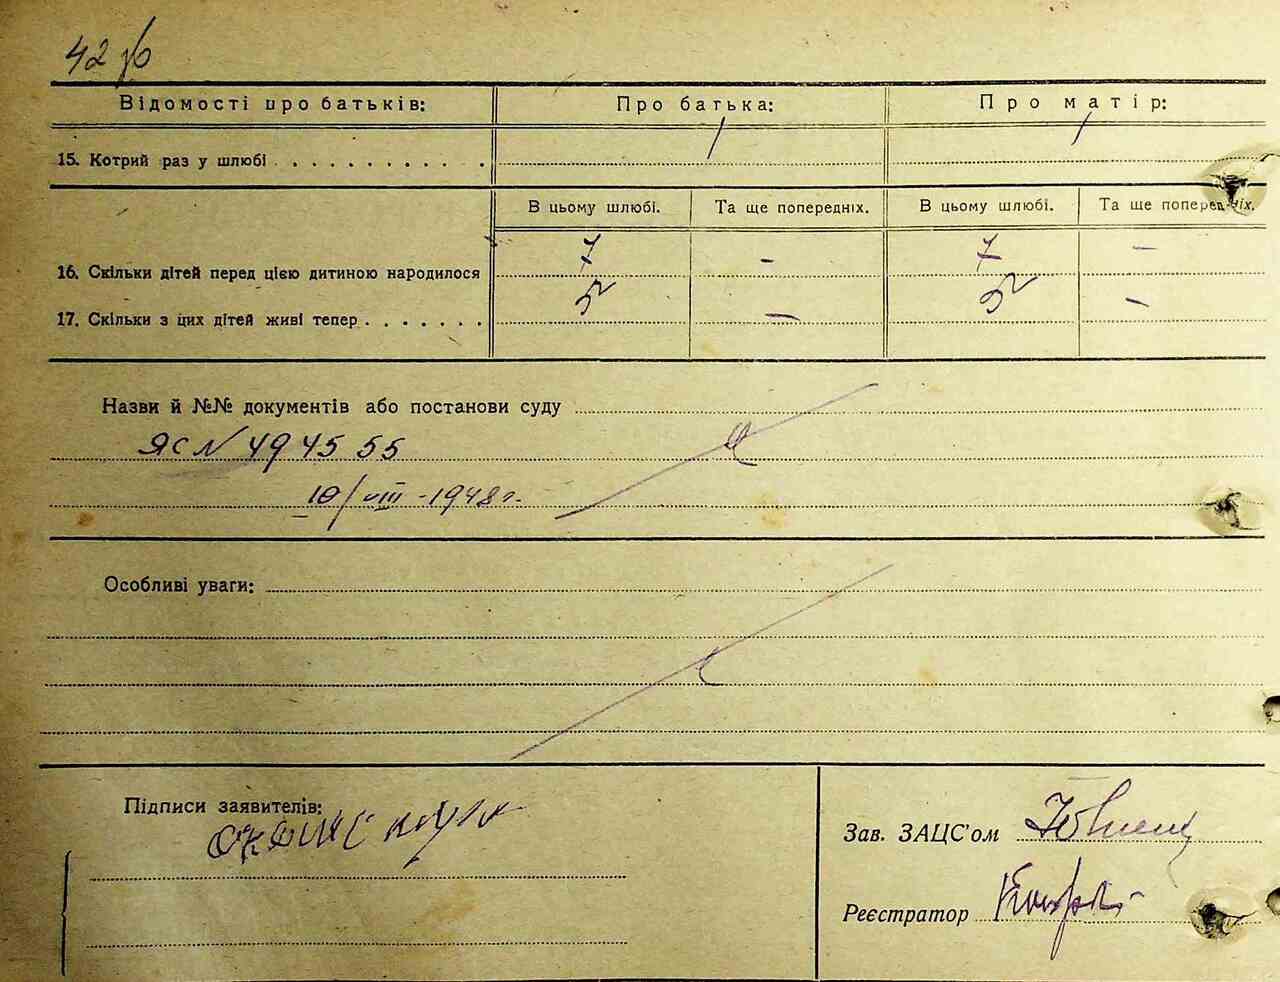 42 зв
Відомості про батьків: Про батька: Про матір:
15. Котрий раз у шлюбі 1 1
В цьому шлюбі. Та ще попередніх. В цьому шлюбі. Та ще попередніх.
16. Скільки дітей перед цією дитиною народилося 7 - 7 -
17. Скільки з цих дітей живі тепер - -
Назви й №№ документів або постанови суду
ЯС № 494555
10/VIII-1948 г.
Особливі уваги:
Підписи заявителів:
Зав. ЗАЦС'ом
Реєстратор